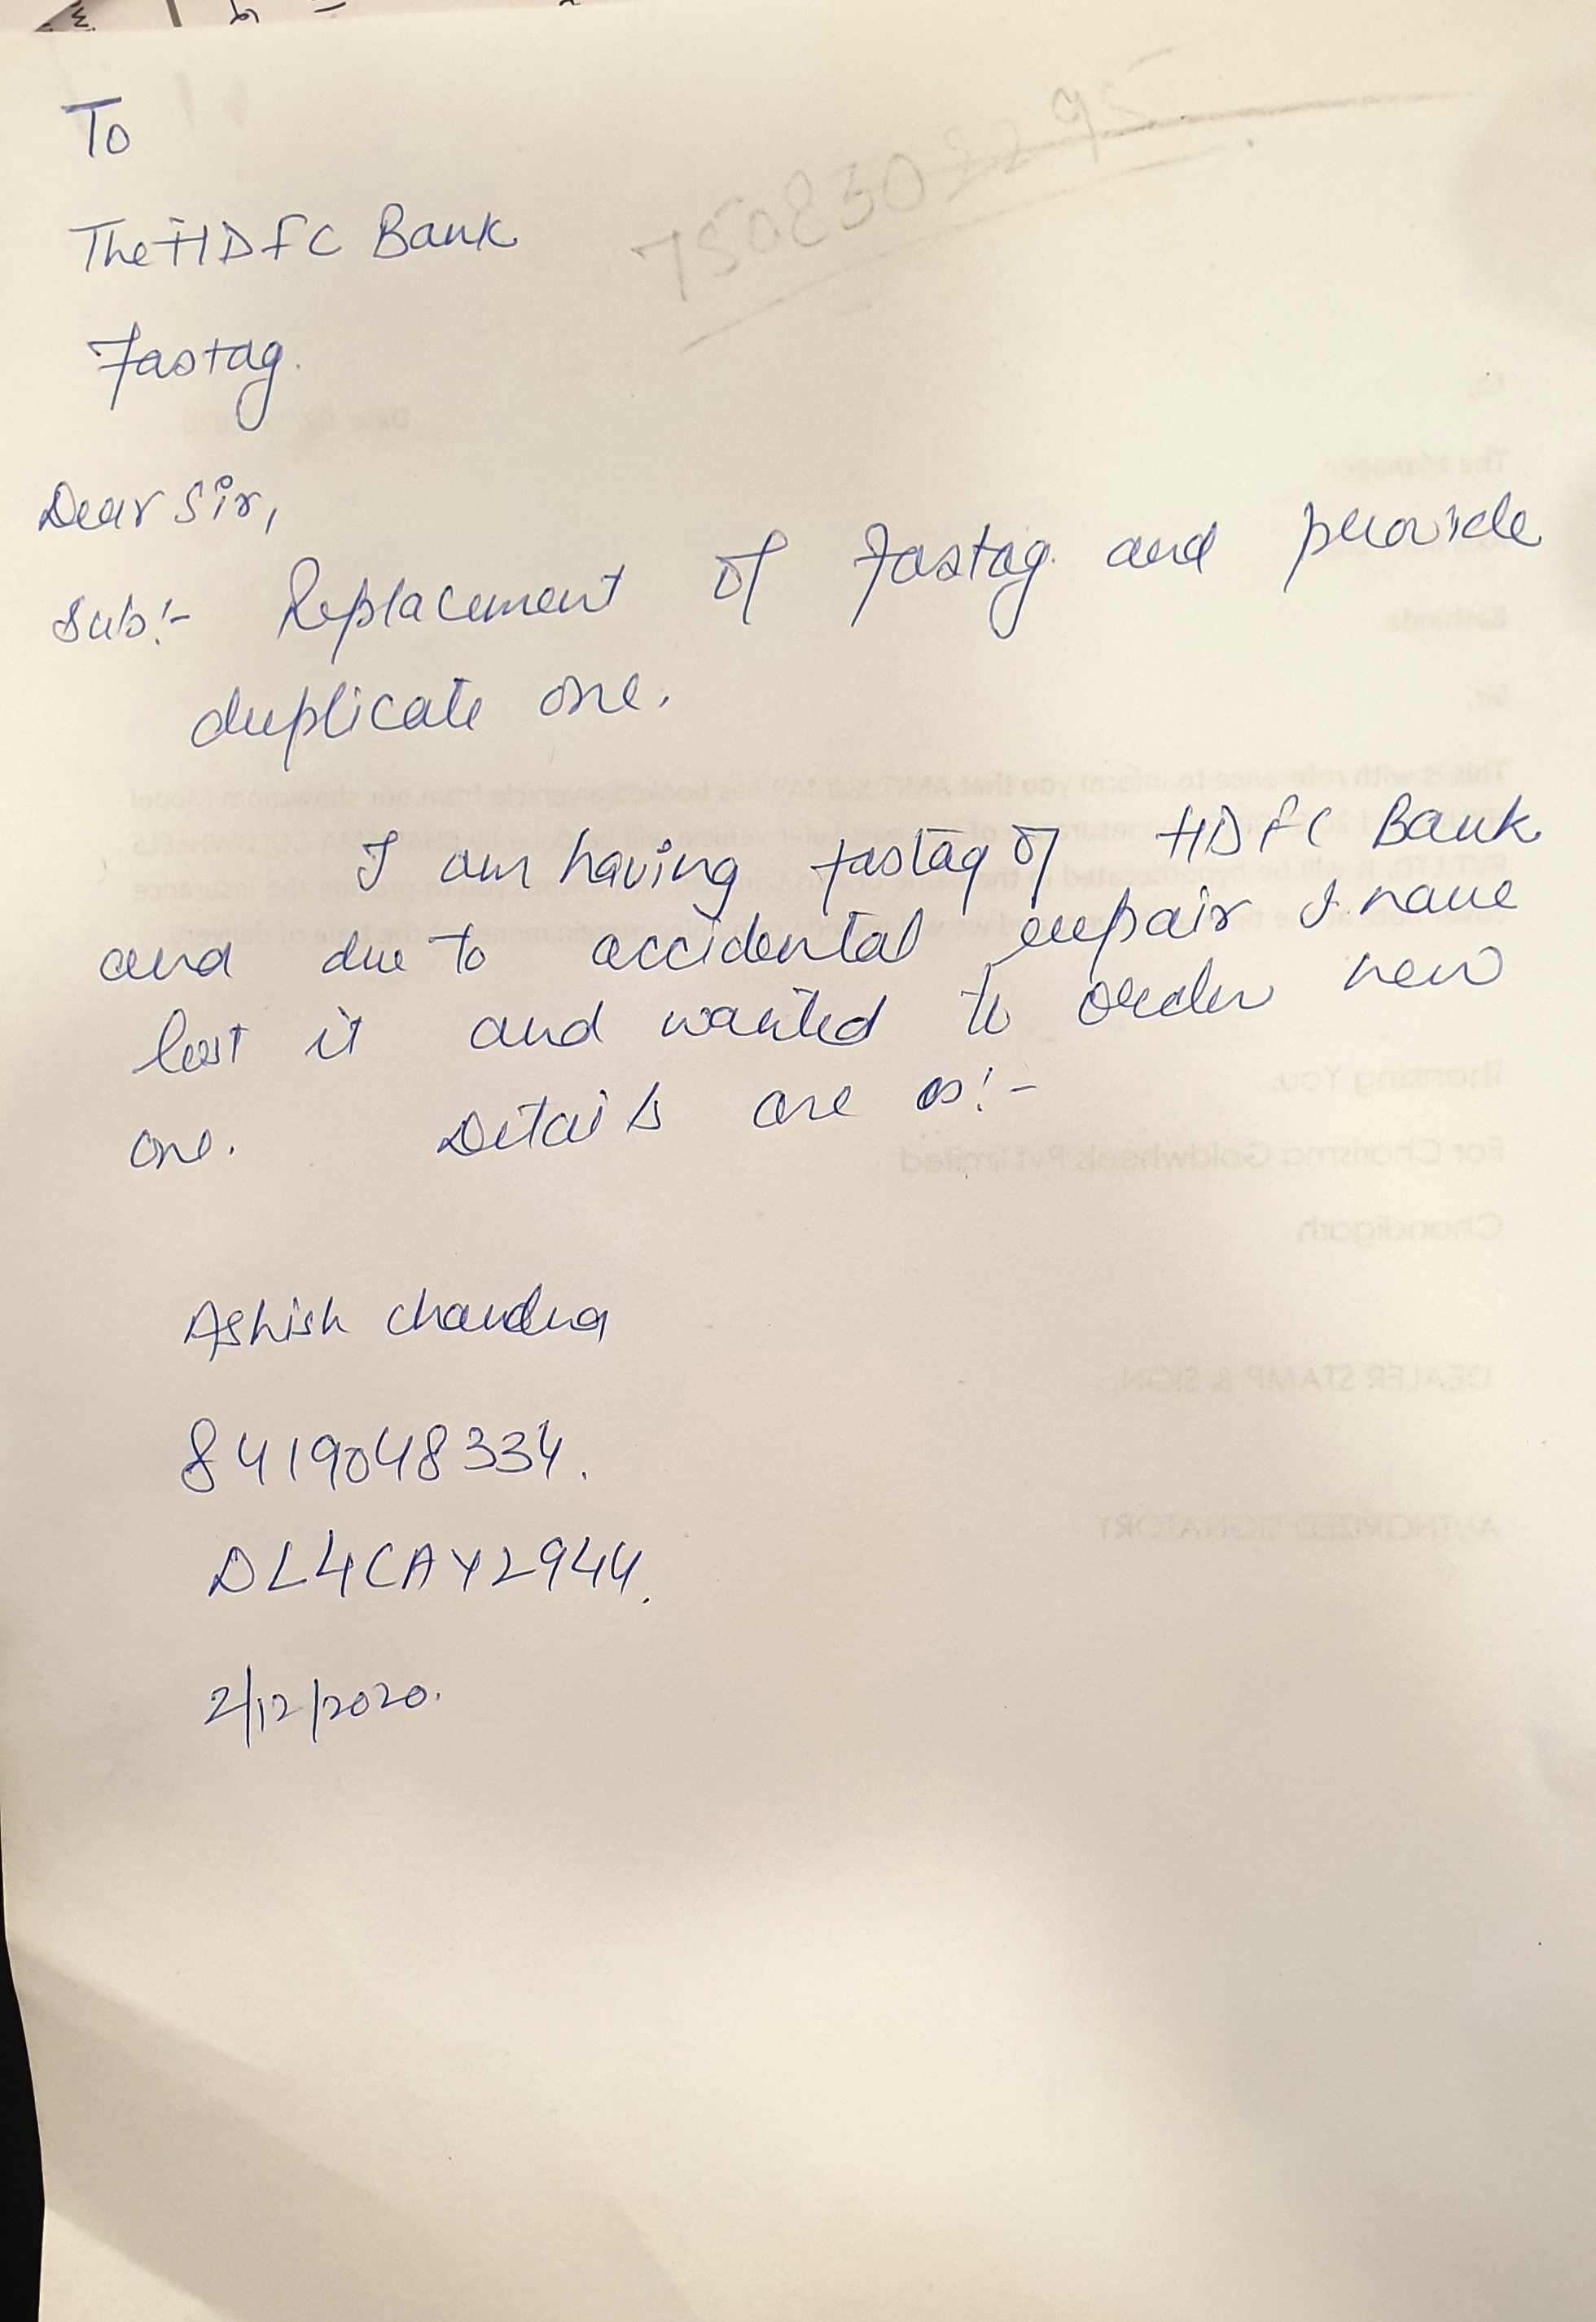 To
7508302295
The HDFC Bank
Fastag.
Dear Sir,
Sub:- Replacement of Fastag. and provide
duplicate one.
I am having fastag of HDFC Bank
and due to accidental repair I have
lost it and wanted to order new
one. Details are as:-
Ashish Chandra
8419048334.
DL4CAY2944.
2/12/2020.